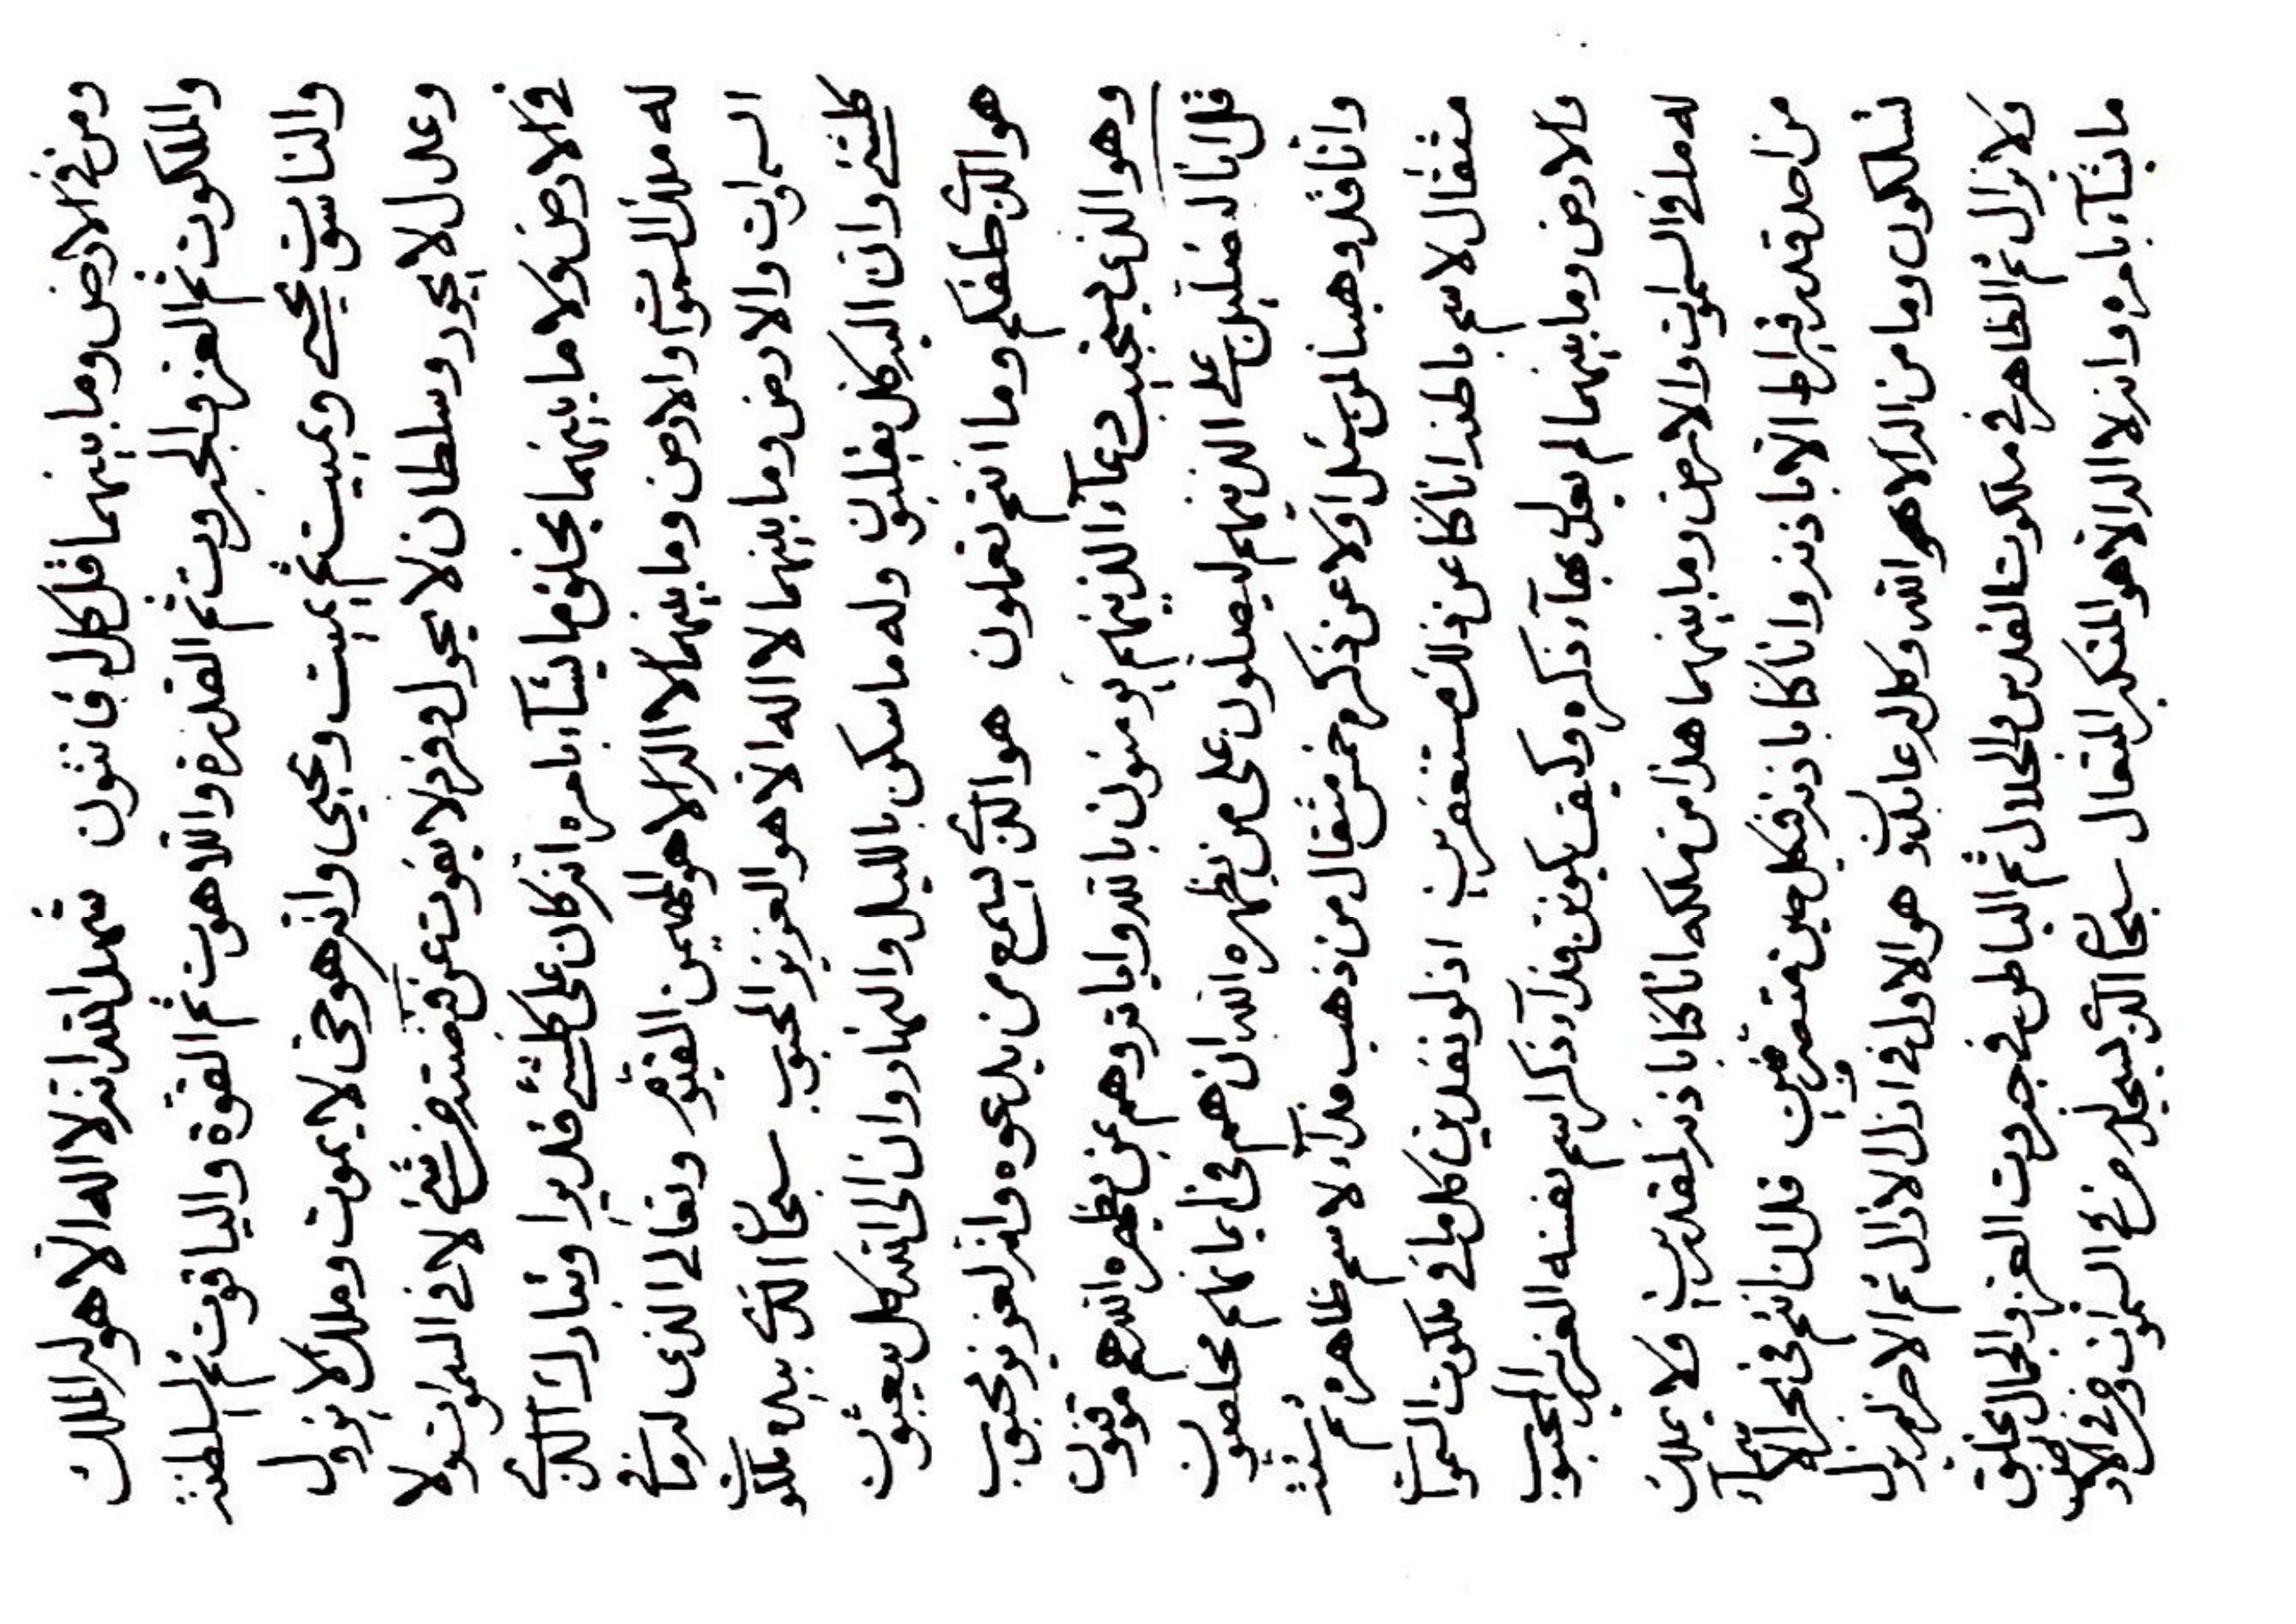 ومن في الارض وما بينهما قل كل له قانتون شهد الله انه لا اله الا هو له الملك
والملكوت ثم العز والجبروت ثم القدرة واللاهوت ثم القوة والياقوت ثم السلطنة
والناسوت يحيي ويميت ثم يميت ويحيي وانه هو حي لا يموت وملك لا يزول
وعدل لا يجور وسلطان لا يحول وفرد لا يفوت عن قبضته من شئ لا في السموات ولا
في الارض ولا ما بينهما يخلق ما يشآء بامره انه كان على كلشئ قديرا وتبارك الذي
له ملك السموات والارض وما بينهما لا اله الا هو المهيمن القيوم وتعالى الذي له ما في
السموات والارض وما بينهما لا اله الا هو العزيز المحبوب سبحان الذي بيده ملكوت
كلشئ وان اليه كل يقلبون وله ما سكن بالليل والنهار وان الى الله كل يبعثون
هو الذي خلقكم وما انتم تعملون هو الذي يسمع من يدعوه وانه لعزيز محبوب
وهو الذي يستجيب دعآء الذينهم يؤمنون بالله واياته وهم بمن يظهره الله هم موقنون
قل انا لمصلين على الذينهم ليصلون على من يظهره الله ان هم في ايمانهم مخلصون
وانا قد وهبنا لمن يسئل اولا عن ذكره خمس مثقال من ذهب فدآء لاسم ظاهره ثم ستة
مثقال لاسم باطنه انا كنا عن ذلك مستغفرين اذ لو نفدين كل ما في ملكوت السموات
والارض وما بينهما لم يعدل بهآء ذكره وكيف يكونن فدآء ذكر اسم نفسه العزيز المحبوب
له ما في السموات والارض وما بينهما هذا من ملكه انا كنا باذنه لمقدرين ولا يملك
من احد قدر قيراط الا باذنه وانا كنا باذنه في كل حين متصرفين قل ان انتم في بحر الاسمآء
تسلكون وما من اله الا هو الله وكل له عابدون هو الاول في ازل الازال ثم الاخر لم يزل
ولا يزال ثم الظاهر في ملكوت القدس والجلال ثم الباطن في جبروت العز والجمال يخلق
ما يشآء بامره وانه لا اله الا هو المتكبر المتعال سبحان الذي يسجد له من في السموات ومن في الارض